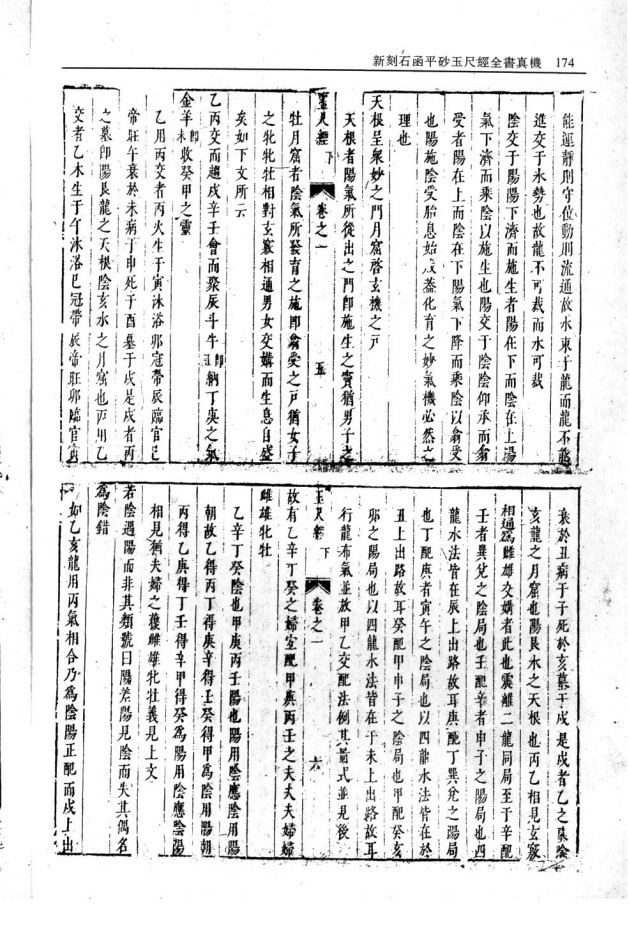 新刻石函平砂玉尺經全書真機 174
能運靜則守位動則流通故水東于龍而龍不能
進交于氷勢也故龍不可裁而水可裁
陰交于陽陽下濟而施生者陽在下而陰在上湯
氣下濟而乘陰以施生也陽交于陰陰仰承而翕
受者陽在上而陰在下陽氣下降而乘陰以翕受
也陽施陰受胎息始成蓋化育之妙氣機必然之
理也
天根呈衆妙之門月窟啓玄機之戸
天根者陽氣所從出之門卽施生之竇猶男子之
玉尺經 下 卷之一 五
牡月窟者陰氣所發育之施卽翕受之戸猶女子
之牝牝牡相對玄竅相通男女交媾而生息自盛
矣如下文所云
乙丙交而趨戌辛壬會而聚辰斗牛卽丑納丁庚之氣
金羊卽未收癸甲之靈
乙用丙交者丙火生于寅沐浴邜冠帶辰臨官巳
帝旺午衰於未病于申死于酉墓于戌是戌者丙
之墓卽陽艮龍之天根陰亥水之月窟也丙用乙
交者乙木生于午沐浴巳冠帶辰帝旺邜臨官寅
衰於丑病于子死於亥墓于戌是戌者乙之庫陰
亥龍之月窟也陽艮水之天根也丙乙相見玄竅
相通爲雌雄交媾者此也震離二龍同局至于辛配
壬者巽兌之陰局也壬配辛者申子之陽局也四
龍水法皆在辰上出路故耳庚配丁巽兌之陽局
也丁配庚者寅午之陰局也以四龍水法皆在於
丑上出路故耳癸配甲申子之陰局也甲配癸亥
邜之陽局也以四龍水法皆在于未上出路故耳
行龍布氣並放甲乙交配法例其薗式並見後
玉尺經 下 卷之一 六
故有乙辛丁癸之婦宜配甲庚丙壬之夫夫夫婦婦
雌雄牝牡
乙辛丁癸陰也甲庚丙壬陽也陽用陰應陰用陽
朝故乙得丙丁得庚辛得壬癸得甲爲陰用陽朝
丙得乙庚得丁壬得辛甲得癸爲陽用陰應陰陽
相見猶夫婦之穫雌雄牝牡義見上文
若陰遇陽而非其類號曰陽差陽見陰而失其偶名
爲陰錯
如乙亥龍用丙氣相合乃爲陰陽正配而戌上出